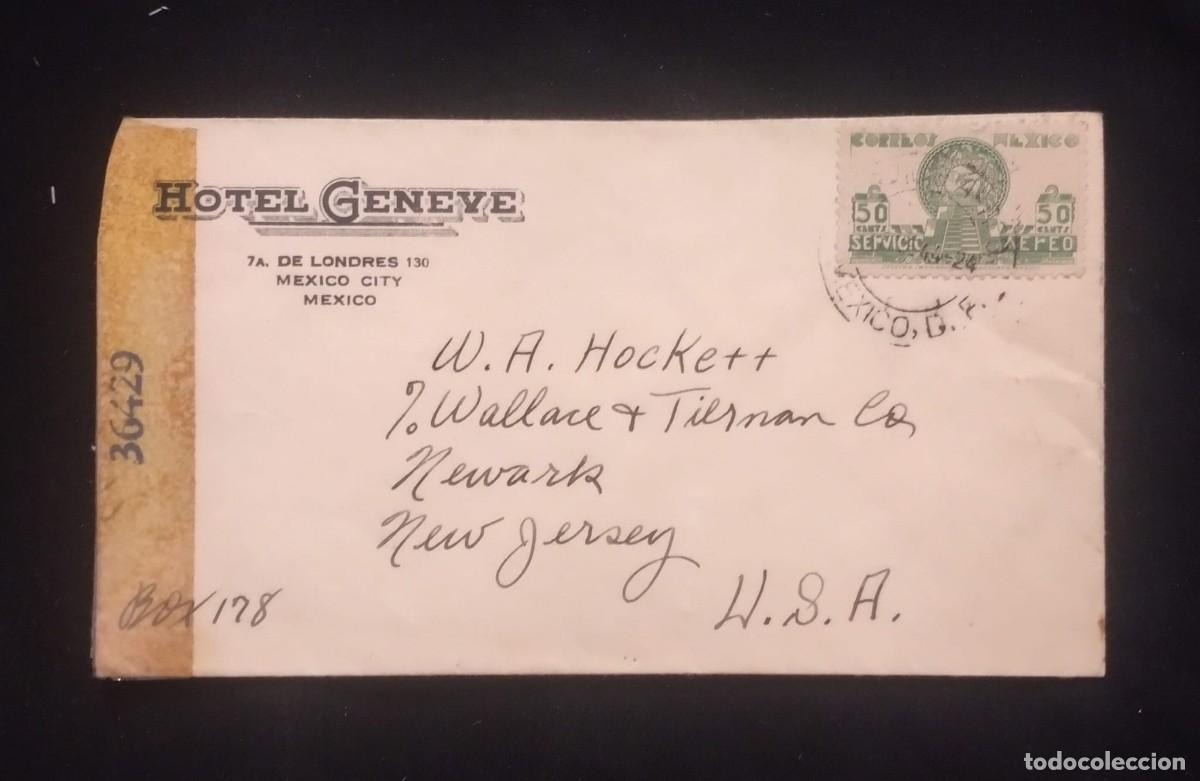 HOTEL GENEVE
7A. DE LONDRES 130
MEXICO CITY
MEXICO
CORREOS MEXICO
50 CENTS 50 CENTS
SERVICIO AEREO
MEXICO, D. F.
36429
W. A. Hockett
% Wallace & Tiernan Co
Newark
New Jersey
U. S. A.
Box 178
todocoleccion